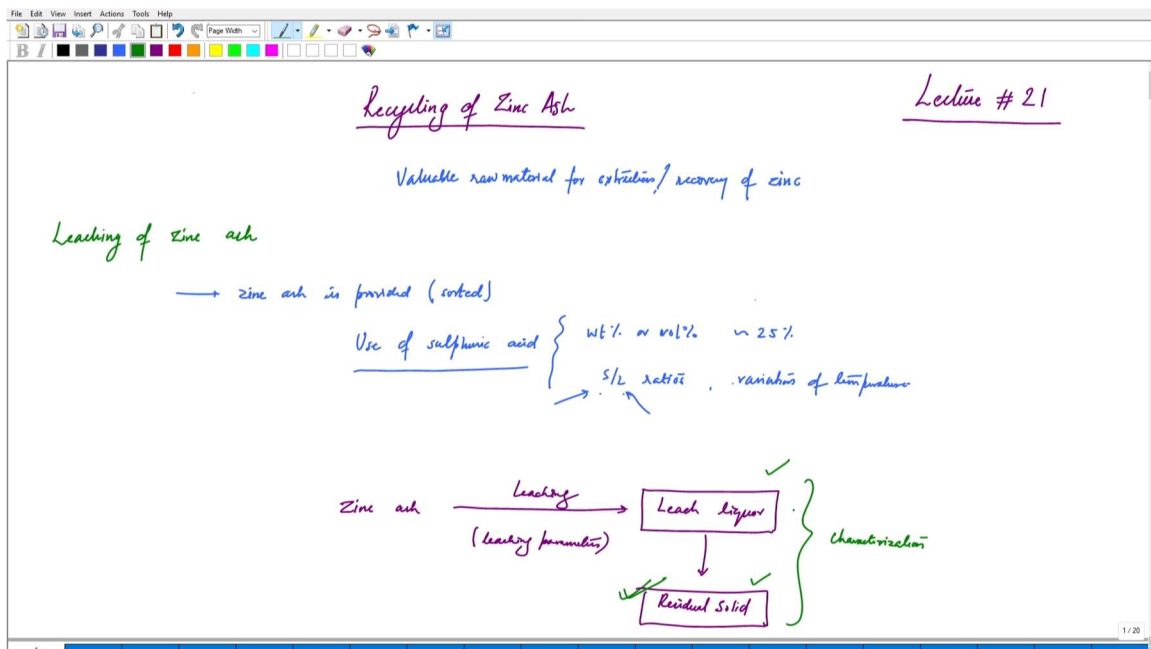 File Edit View Insert Actions Tools Help
Page Width
B I
Recycling of Zinc Ash
Lecture # 21
Valuable raw material for extraction / recovery of zinc
Leaching of zinc ash
→ zinc ash is provided (sorted)
Use of sulphuric acid { wt% or vol% ~ 25%
S/L ratios, variation of temperature
Zinc ash
Leaching
(leaching parameters)
Leach liquor
Residual solid
characterization
1 / 20